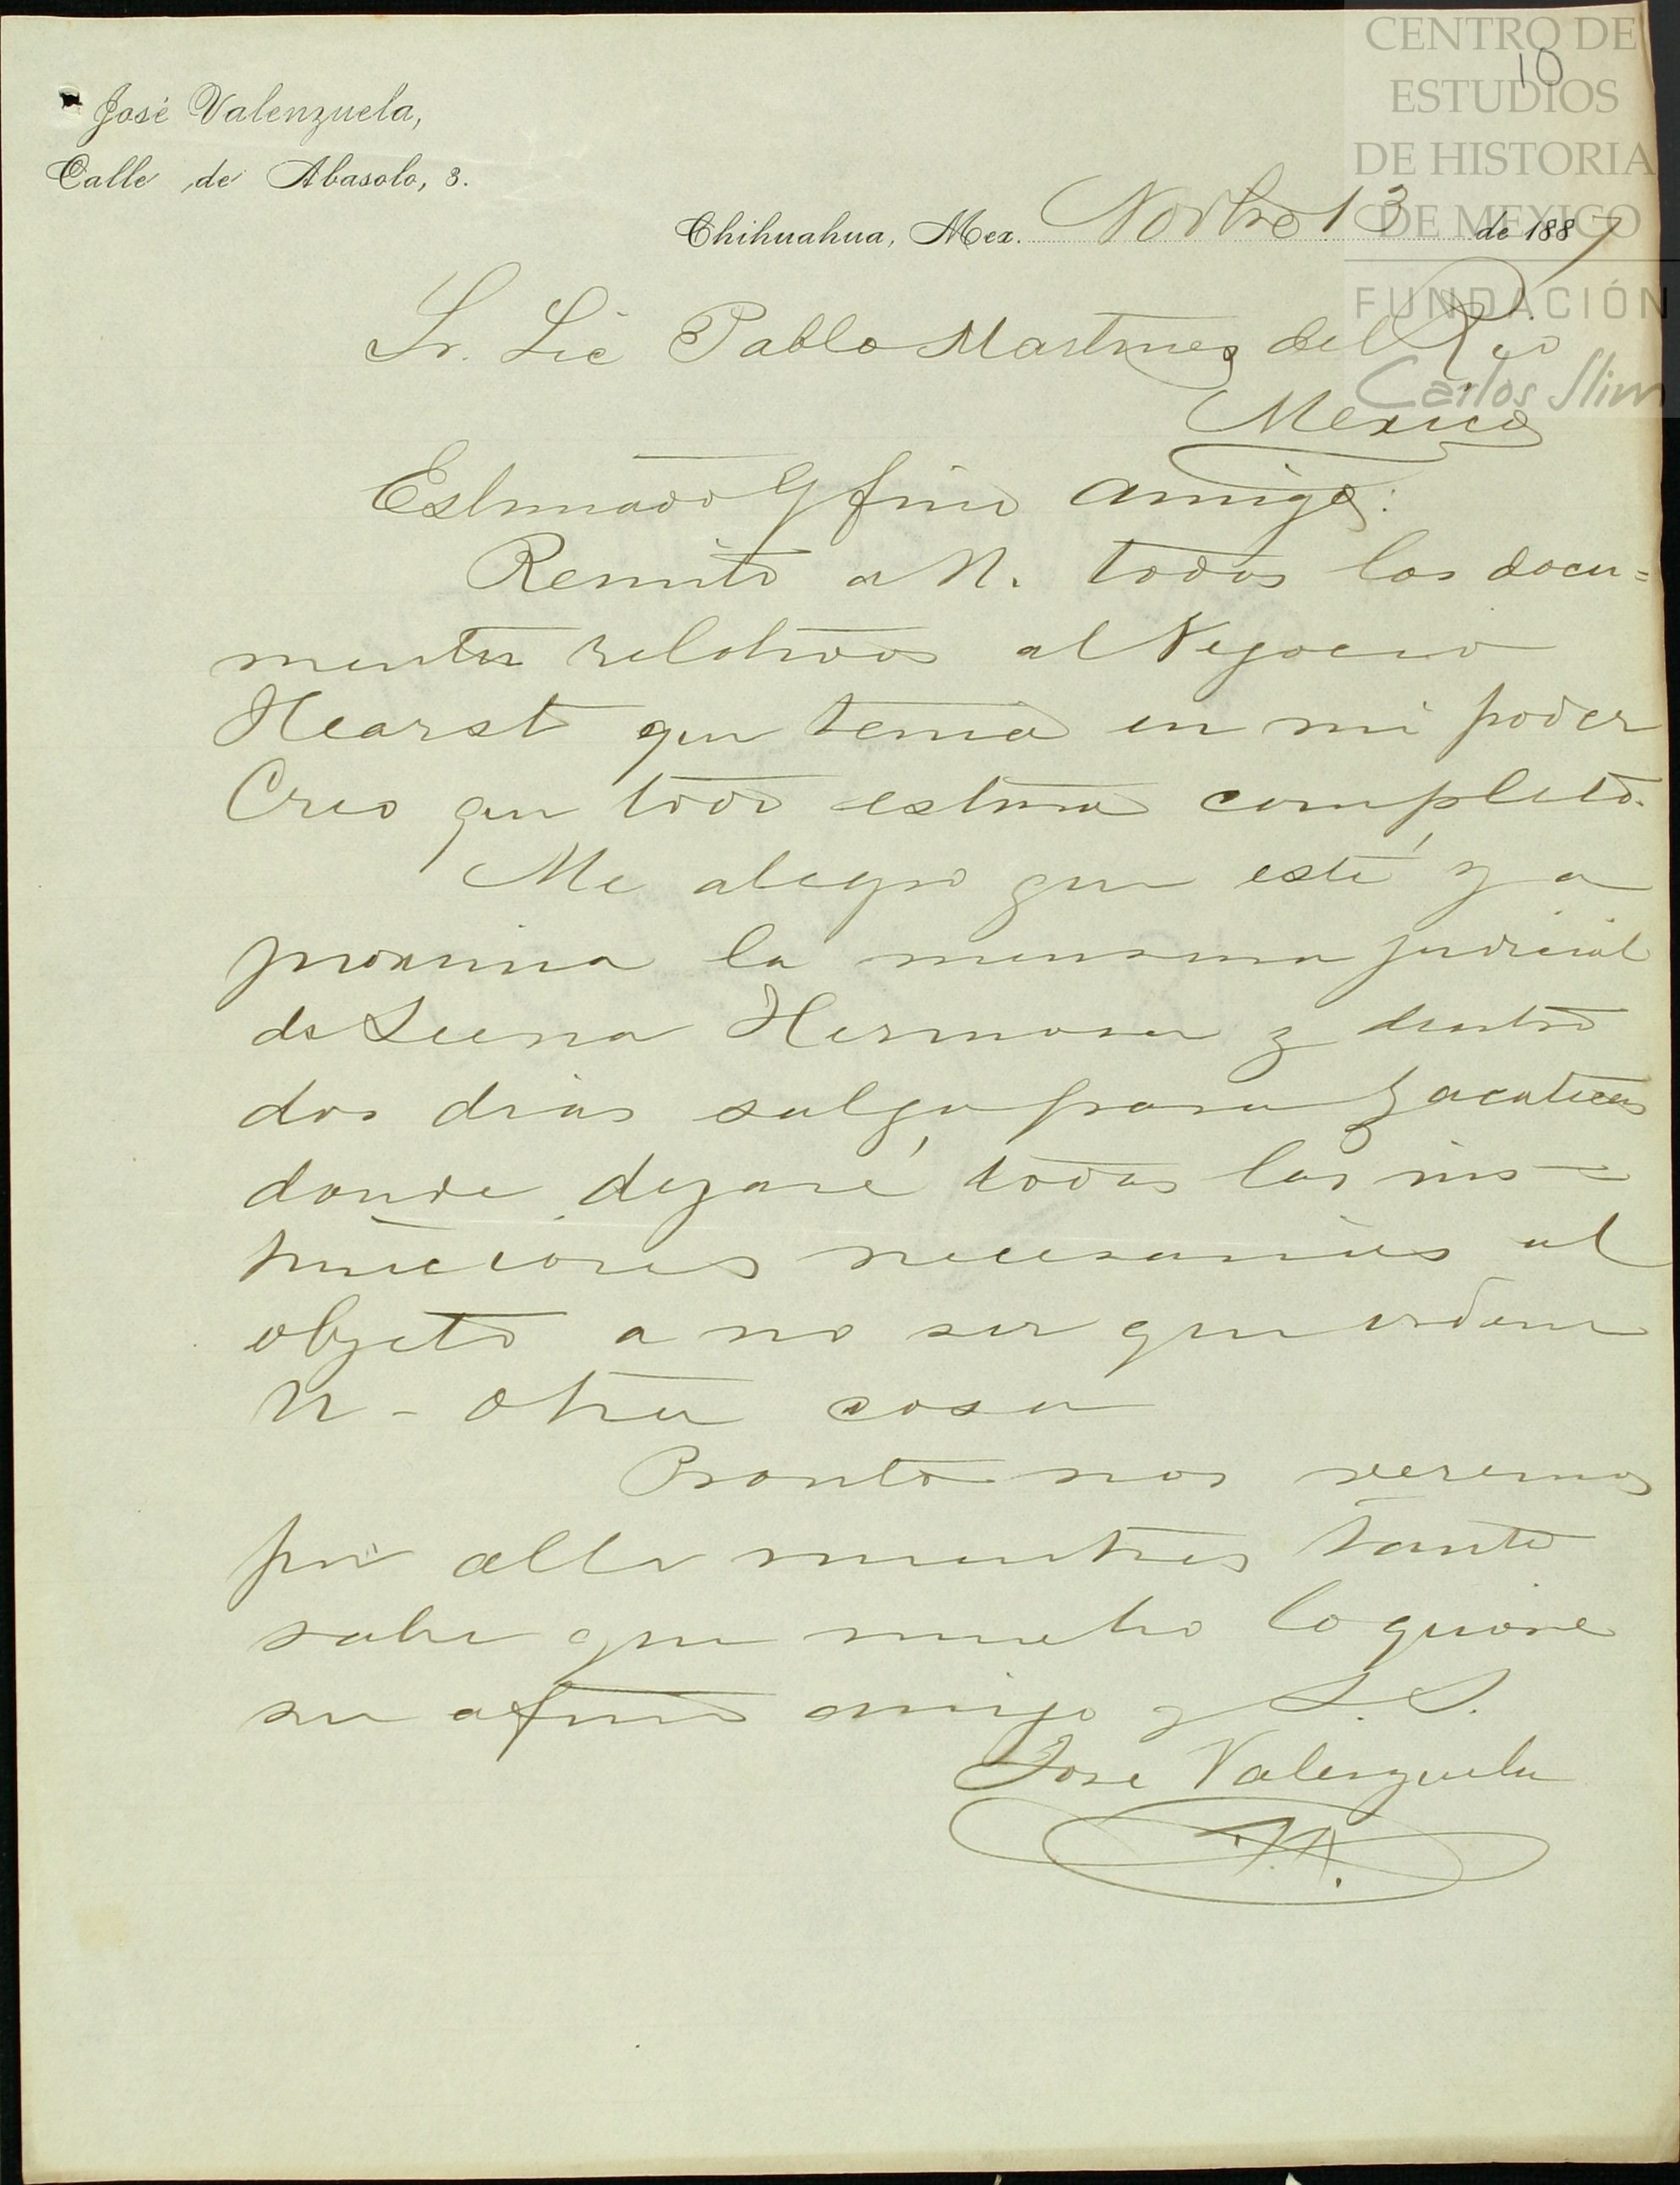 CENTRO DE
ESTUDIOS
DE HISTORIA
DE MEXICO
FUNDACIÓN
Carlos Slim
10
José Valenzuela,
Calle de Abasolo, 3.
Chihuahua, Mex. Novbre 13 de 1887
Sr. Lic Pablo Martinez del Rio
Mexico
Estimado y fino amigo:
Remito a V. todos los docu=
mentos relativos al Negocio
Hearst que tenia en mi poder
Creo que todo estara completo.
Me alegro que esté ya
proxima la mensura judicial
de Sierra Hermosa y dentro
dos dias salgo para Zacatecas
donde dejaré todas las ins=
trucciones necesarias al
objeto a no ser que ordene
V- otra cosa
Pronto nos veremos
por alla mientras tanto
sabe que mucho lo quiere
su afmo amigo y S.S.
Jose Valenzuela